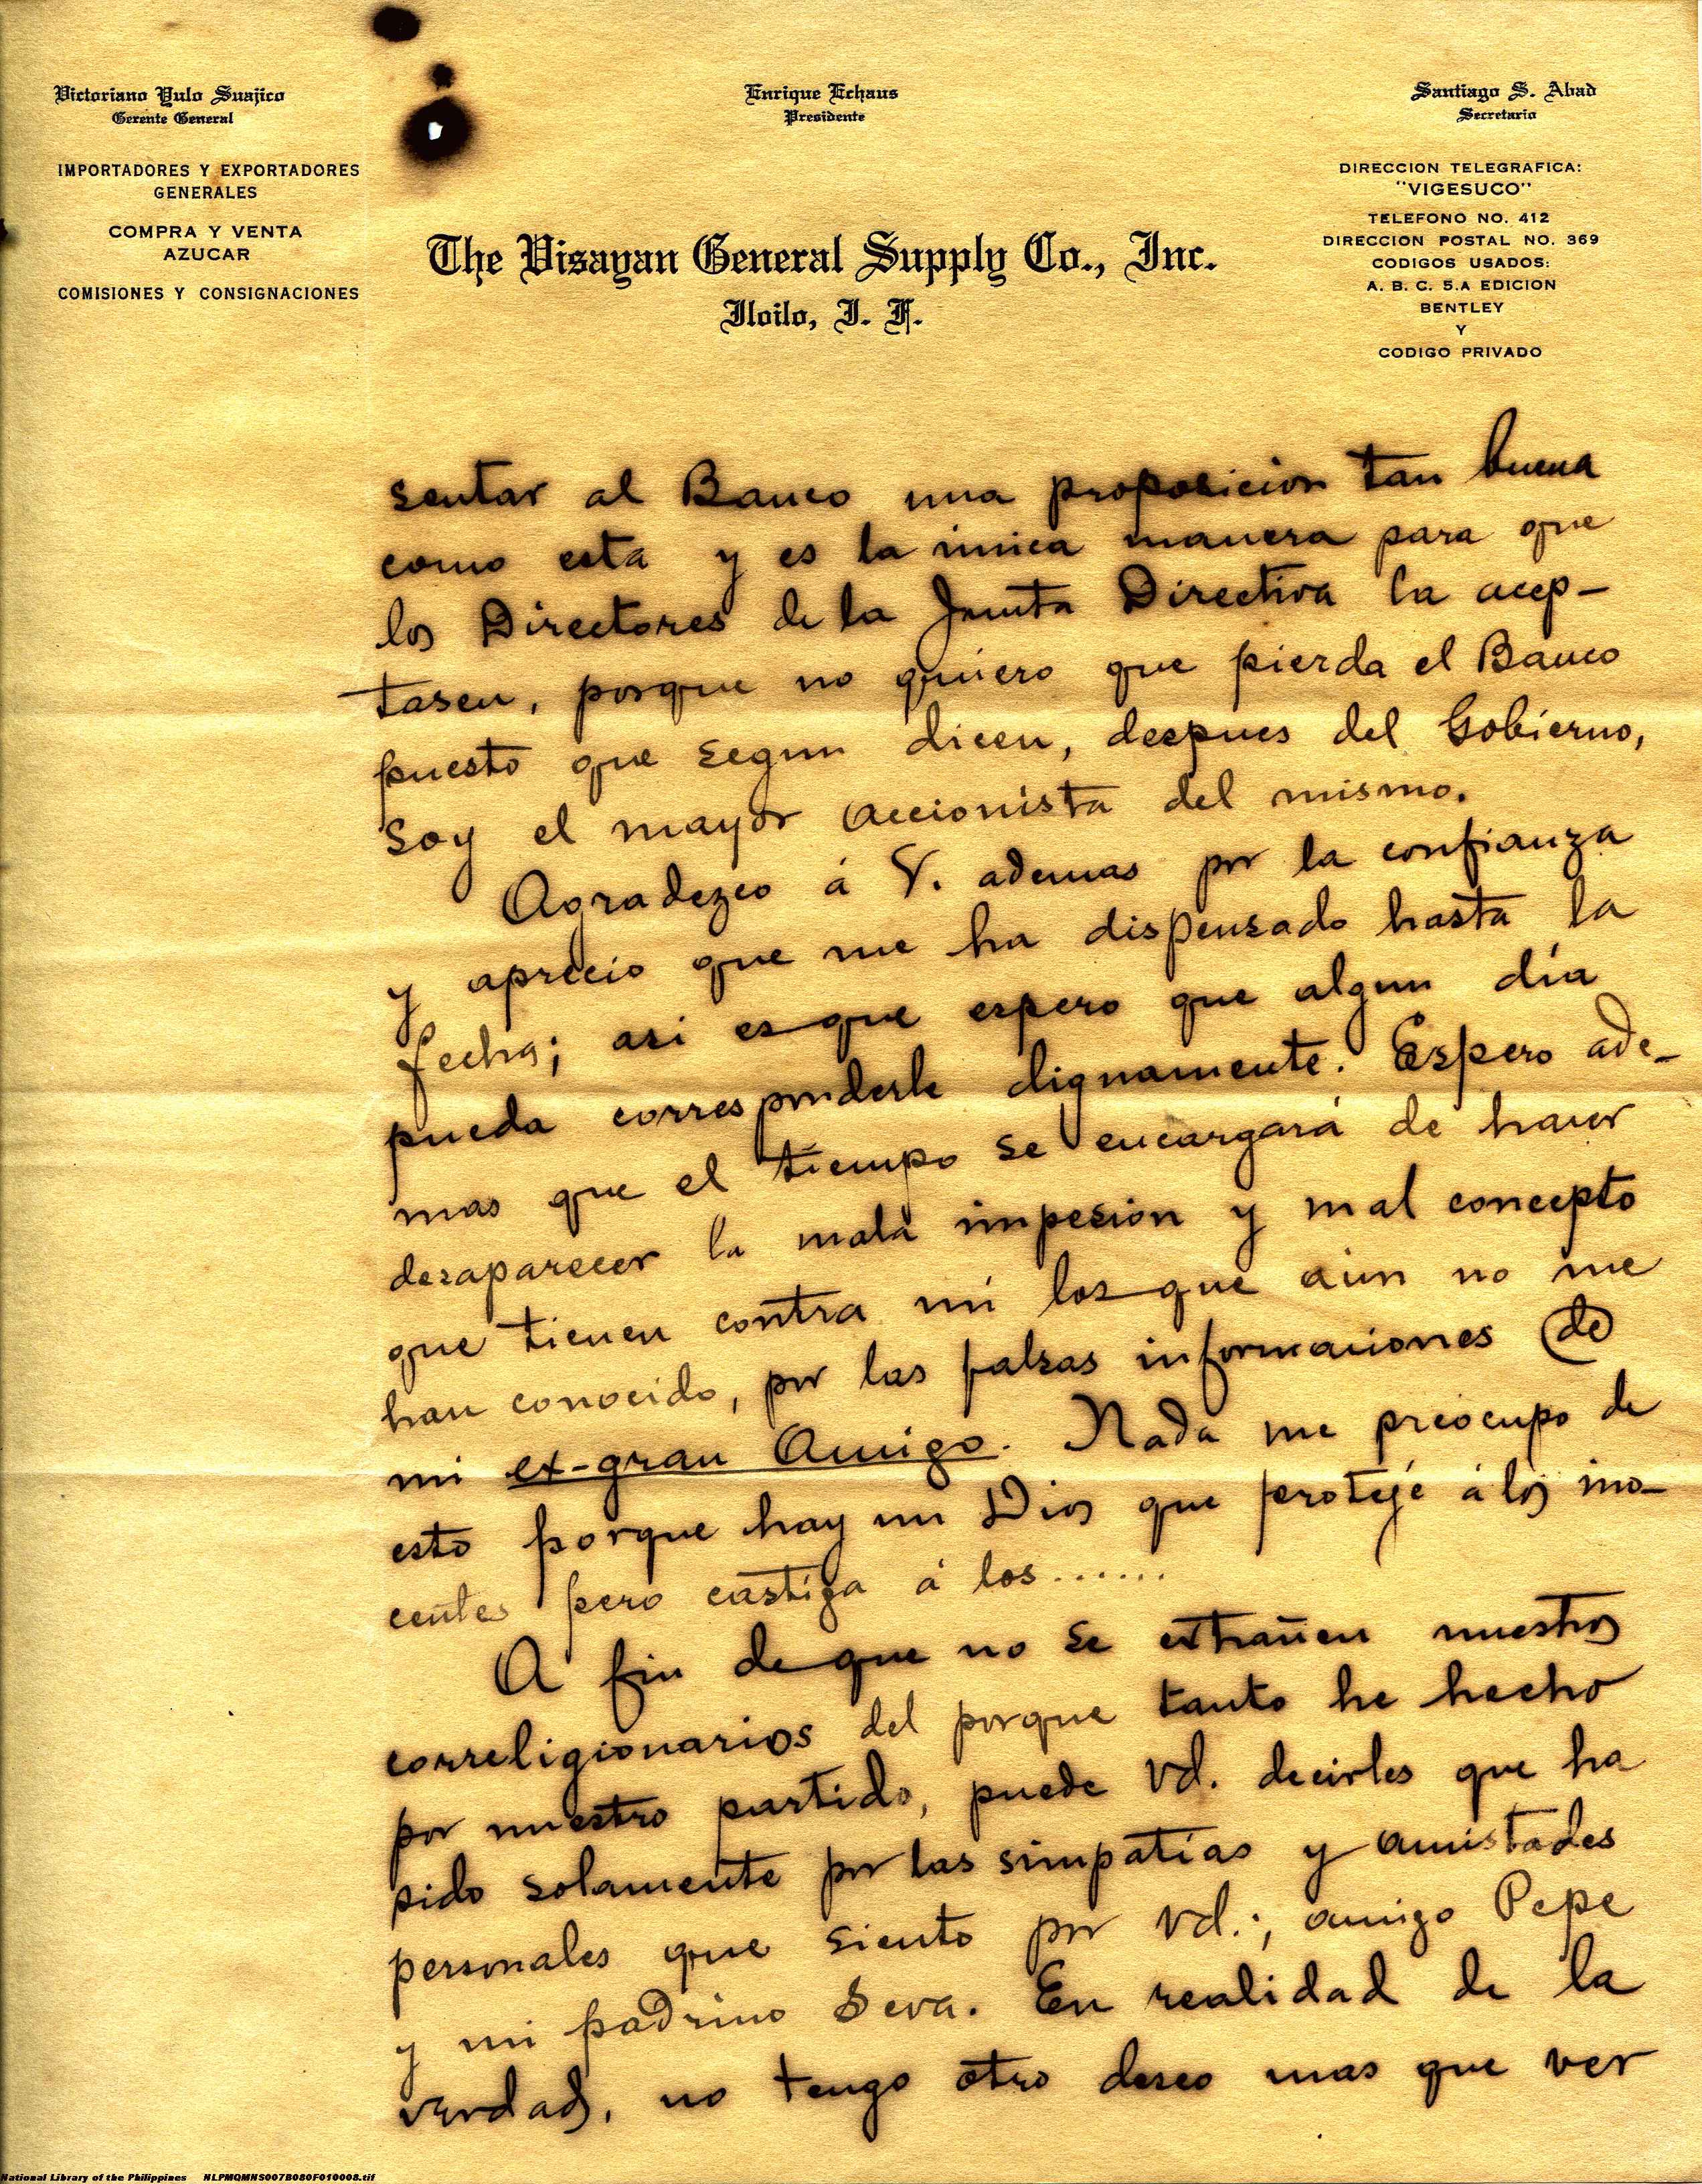 Victoriano Yulo Suajico
Gerente General
IMPORTADORES Y EXPORTADORES
GENERALES
COMPRA Y VENTA
AZUCAR
COMISIONES Y CONSIGNACIONES
Enrique Echaus
Presidente
The Visayan General Supply Co., Inc.
Iloilo, I. F.
Santiago S. Abad
Secretario
DIRECCION TELEGRAFICA:
"VIGESUCO"
TELEFONO NO. 412
DIRECCION POSTAL NO. 369
CODIGOS USADOS:
A. B. C. 5.A EDICION
BENTLEY
Y
CODIGO PRIVADO
sentar al Banco una proposicion tan buena
como esta y es la unica manera para que
los Directores de la Junta Directiva la acep-
tasen, porque no quiero que pierda el Banco
puesto que segun dicen, despues del Gobierno,
soy el mayor accionista del mismo.
Agradezco á V. ademas por la confianza
y aprecio que me ha dispensado hasta la
fecha; asi es que espero que algun día
pueda corresponderle dignamente. Espero ade-
mas que el tiempo se encargará de hacer
desaparecer la mala impesion y mal concepto
que tienen contra mi los que aun no me
han conocido, por las falsas informaciones de
mi ex-gran Amigo. Nada me preocupo de
esto porque hay un Dios que proteje á los ino-
centes pero castiga á los......
A fin de que no se extrañen nuestros
correligionarios del porque tanto he hecho
por nuestro partido, puede Vd. decirles que ha
sido solamente por las simpatías y amistades
personales que siento por Vd.; amigo Pepe
y mi padrino Seva. En realidad de la
verdad, no tengo otro deseo mas que ver
National Library of the Philippines NLPMQMNS007B080F010008.tif